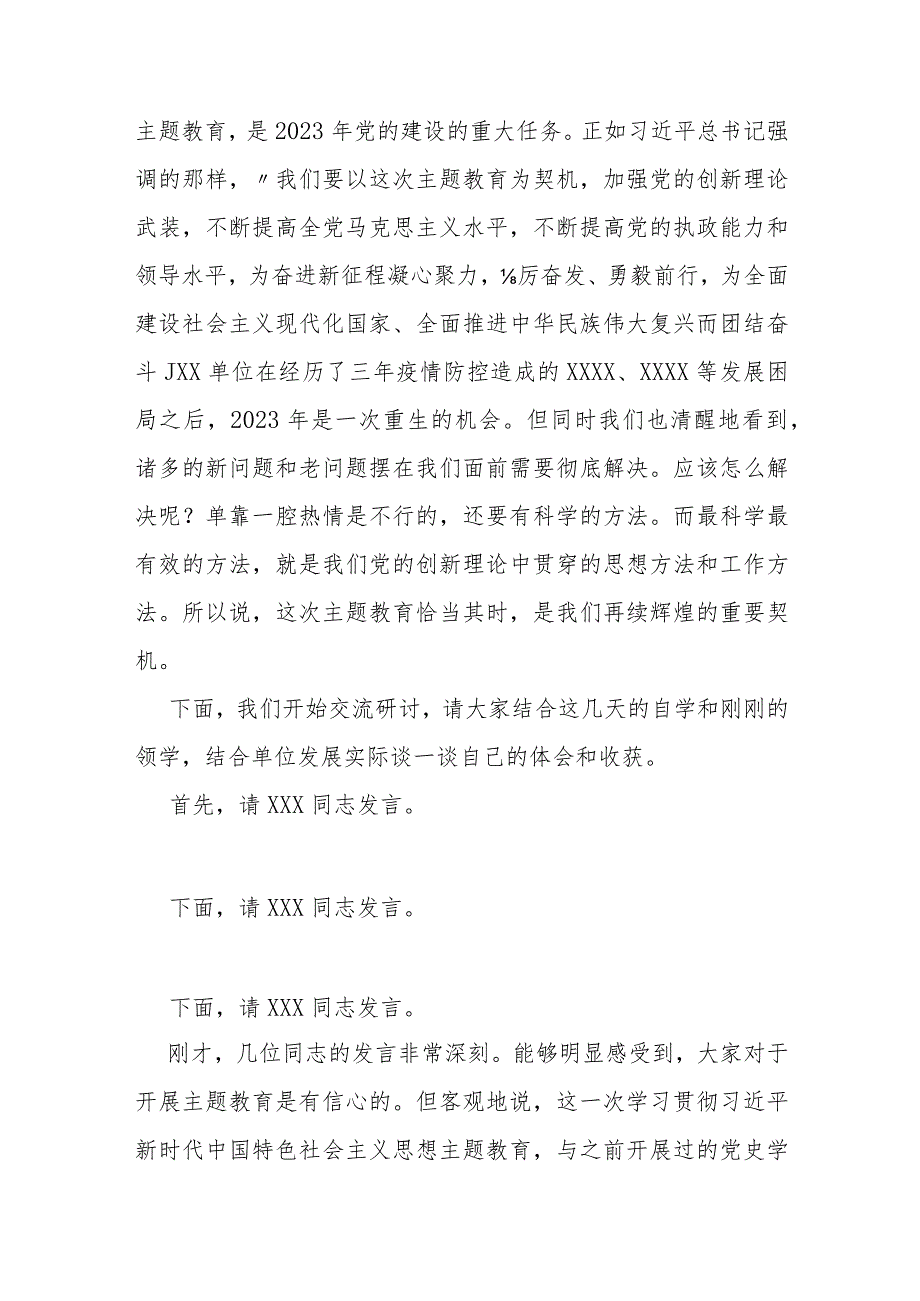 主题教育，是 2023 年党的建设的重大任务。正如习近平总书记强
调的那样，〃我们要以这次主题教育为契机，加强党的创新理论
武装，不断提高全党马克思主义水平，不断提高党的执政能力和
领导水平，为奋进新征程凝心聚力，⅛厉奋发、勇毅前行，为全面
建设社会主义现代化国家、全面推进中华民族伟大复兴而团结奋
斗 JXX 单位在经历了三年疫情防控造成的 XXXX、XXXX 等发展困
局之后，2023 年是一次重生的机会。但同时我们也清醒地看到，
诸多的新问题和老问题摆在我们面前需要彻底解决。应该怎么解
决呢？单靠一腔热情是不行的，还要有科学的方法。而最科学最
有效的方法，就是我们党的创新理论中贯穿的思想方法和工作方
法。所以说，这次主题教育恰当其时，是我们再续辉煌的重要契
机。
下面，我们开始交流研讨，请大家结合这几天的自学和刚刚的
领学，结合单位发展实际谈一谈自己的体会和收获。
首先，请 XXX 同志发言。
下面，请 XXX 同志发言。
下面，请 XXX 同志发言。
刚才，几位同志的发言非常深刻。能够明显感受到，大家对于
开展主题教育是有信心的。但客观地说，这一次学习贯彻习近平
新时代中国特色社会主义思想主题教育，与之前开展过的党史学